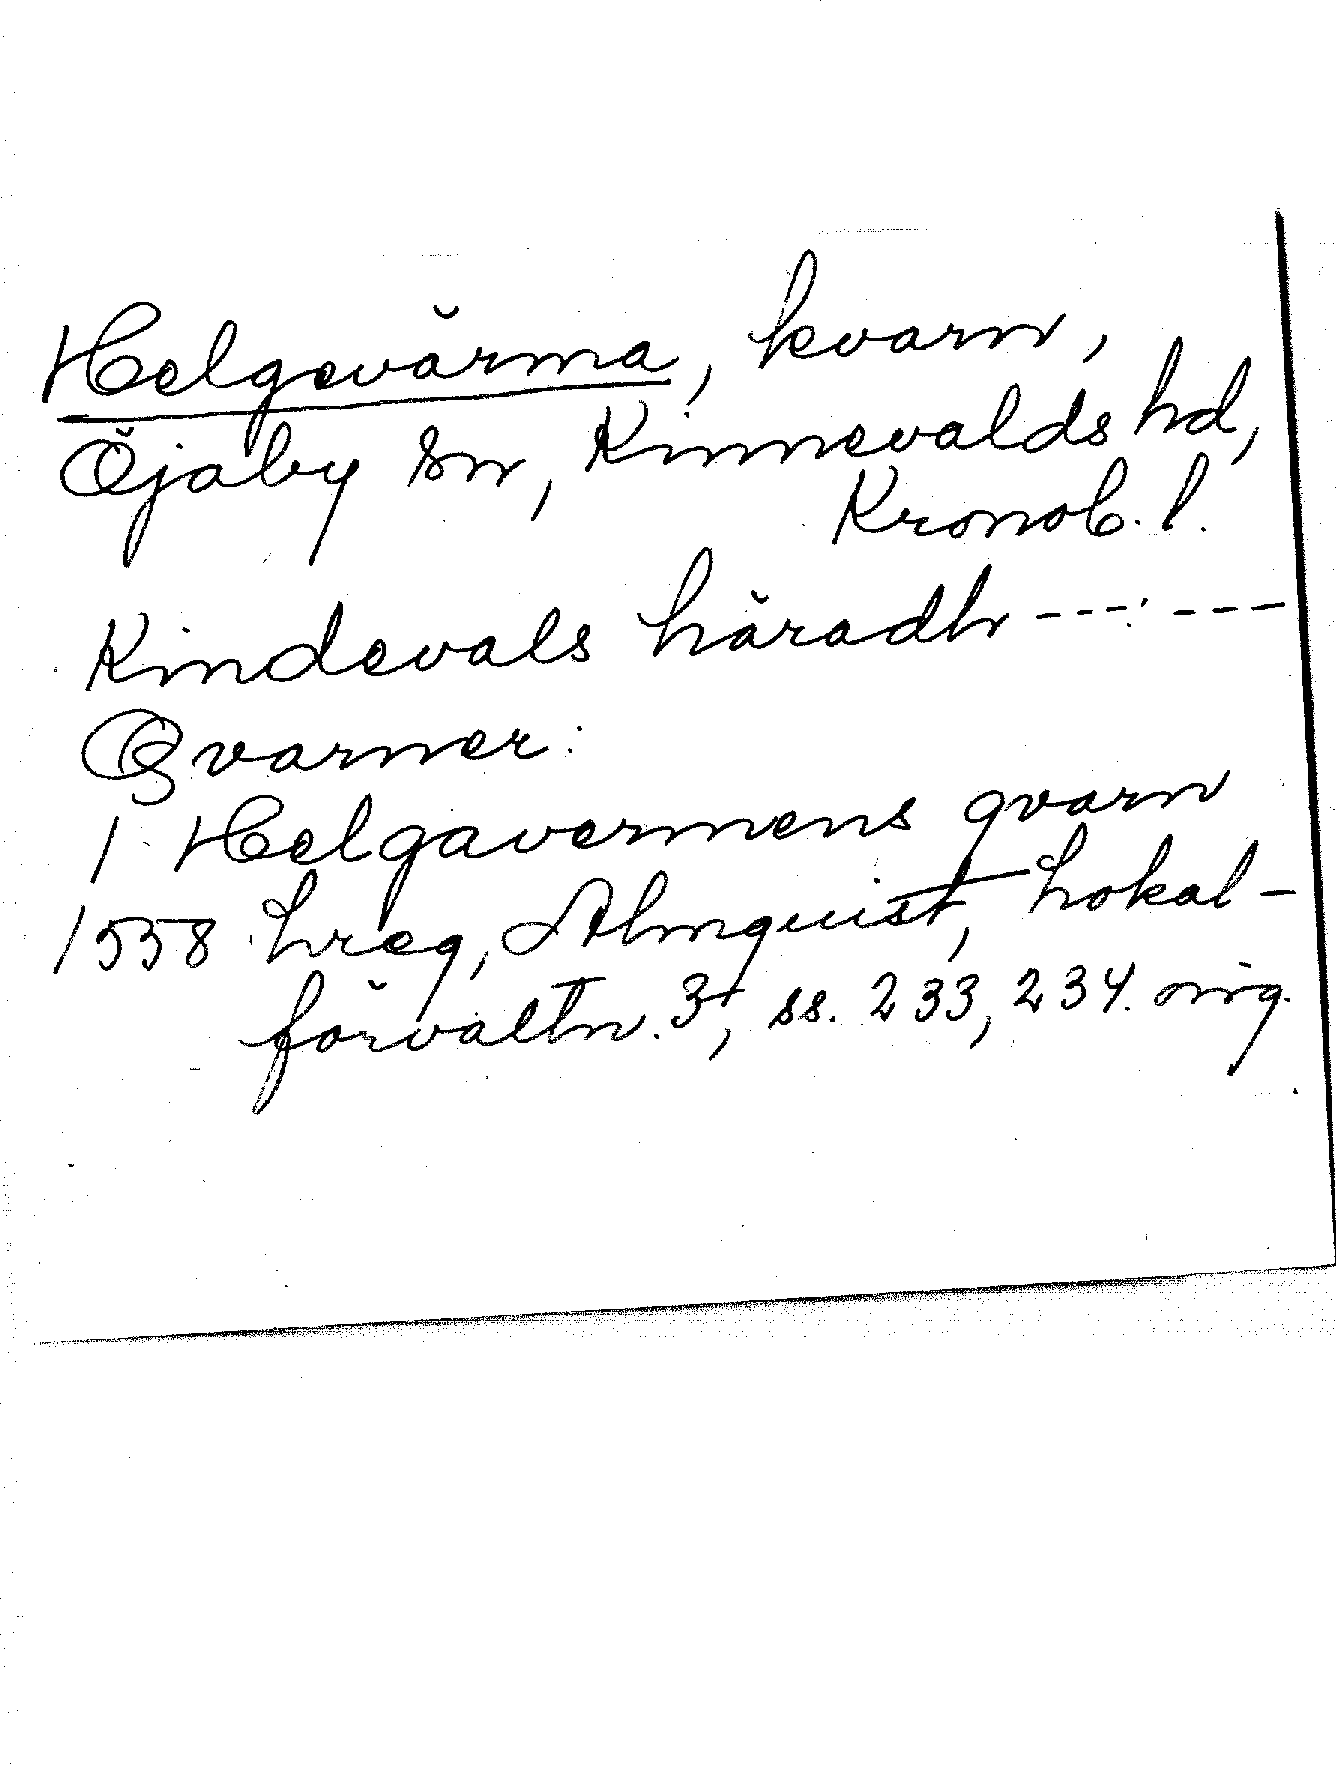 Helgevärma, kvarn,
Öjaby sn, Kinnevalds hd,
Kronob. l.
Kindevals häradh --- ---
Qvarner:
1 Helgavermens qvarn
1558 Lreg, Almquist, Lokal-
förvaltn. 3, ss. 233, 234.